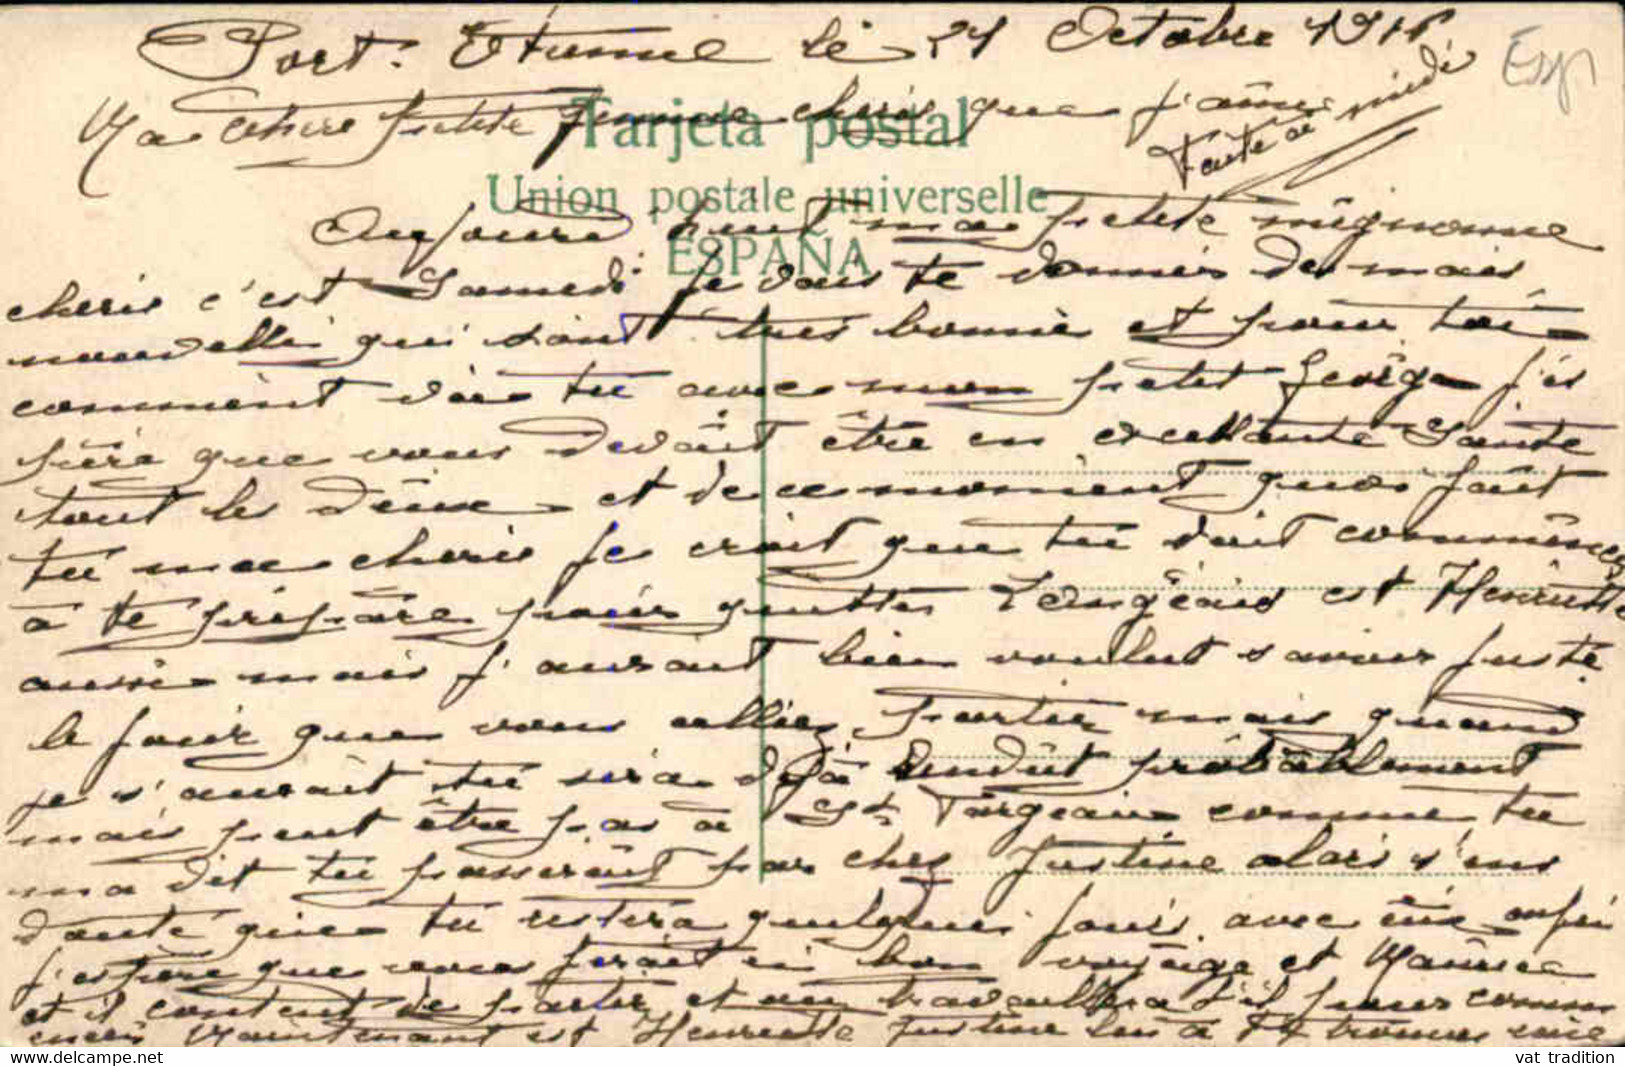 Port. Etienne le 21 Octobre 1916
Esp
Ma chere petite femme cheris que j'aime
Tarjeta postal
Faute a midi
Union postale universelle
ESPAÑA
Aujourd'hui ma petite mignonne
cheris c'est Samedi je vais te donnés de mais
nouvelle qui sont très bonne et pour toi
comment vas tu avec mon petit George j'es
père que vous devait être en excellante Sante
tout les deux et de ce moment quoi fait
tu ma cherie je crait que tu doit commencez
à te prépare pour quittes Langeais est Henriette
aussi mais j'aurait bien voulut savoir juste
le jour que vous alliez partir mais quand
je s'aurait tu sera dejà rendut probablement
mais peut être pas à St Targeau comme tu
ma dit tu passerait par chez Justine alors s'ens
doute que tu restera quelques jours avec eux enfin
j'espère que vous ferait un bon voyage et Maurice
et il content de partir et on travaillera s'il pour comm
encer Maintenant est Henriette Justine lui a t'y trouver une
vat tradition